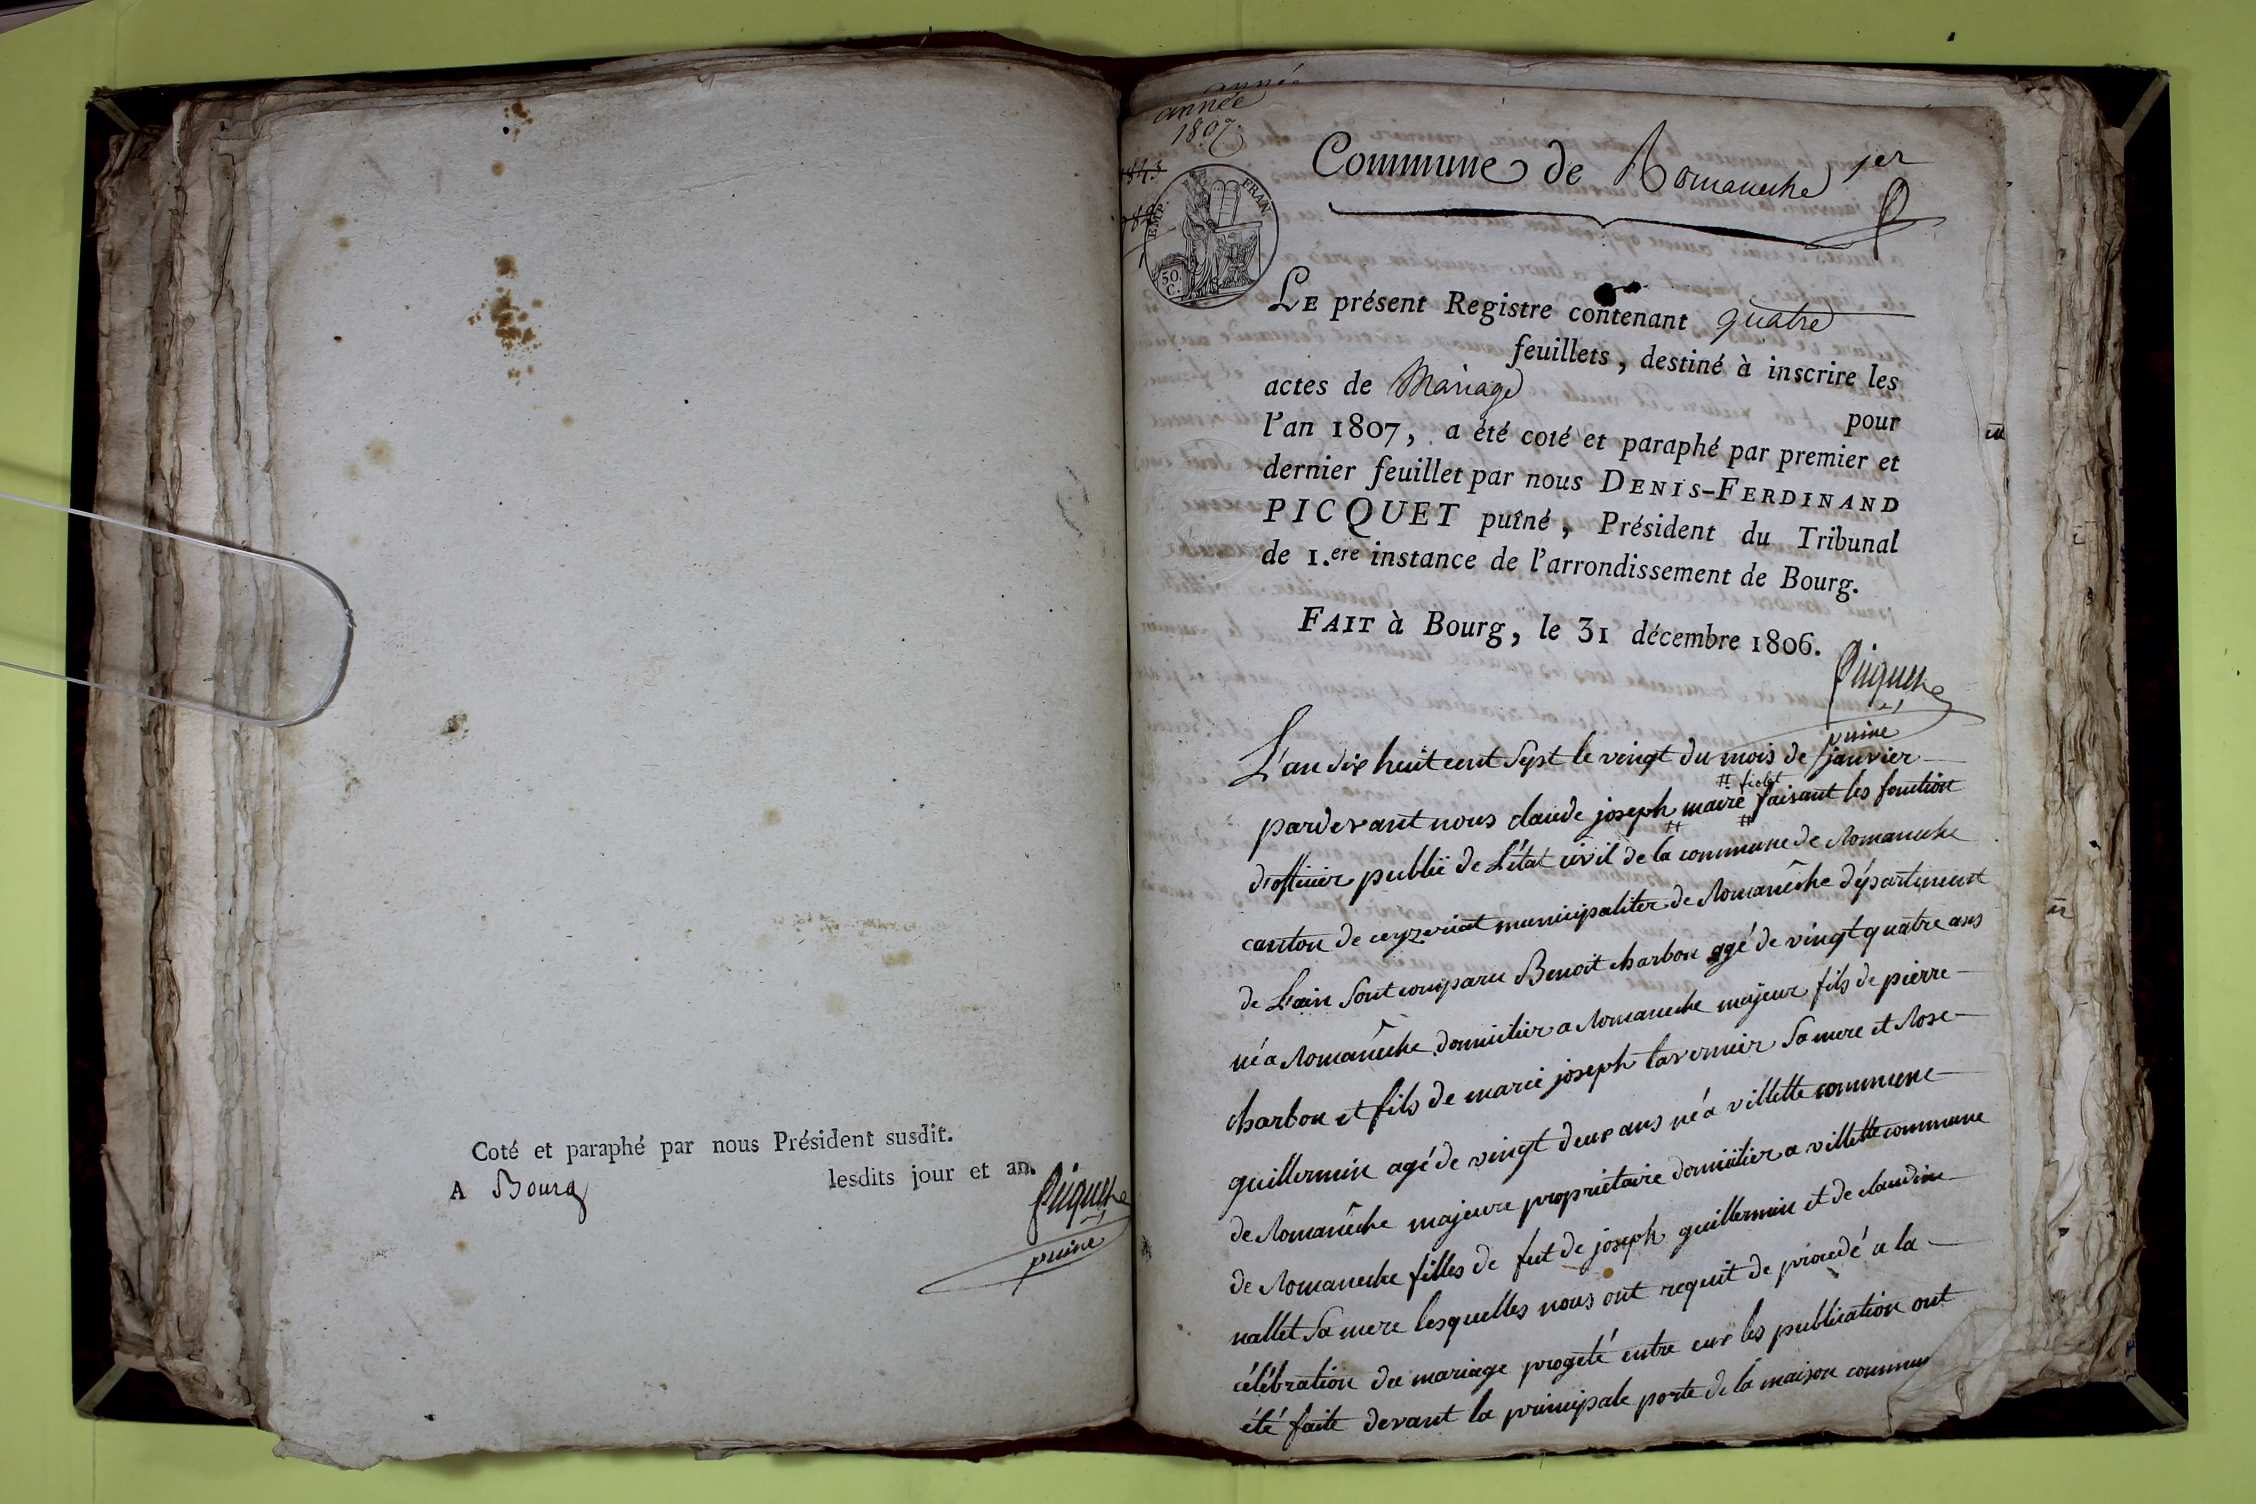 Coté et paraphé par nous Président susdit.
A Bourg lesdits jour et an.
Picquet
puiné
année
année
1807
EMP. FRAN.
50.
C.
Commune de Romaneche 1er
LE présent Registre contenant quatre
feuillets, destiné à inscrire les
actes de Mariage pour
l'an 1807, a été coté et paraphé par premier et
dernier feuillet par nous DENIS-FERDINAND
PICQUET puîné, Président du Tribunal
de 1.ere instance de l'arrondissement de Bourg.
FAIT à Bourg, le 31 décembre 1806.
Picquet
puiné
L'an dix huit cent sept le vingt du mois de janvier
# fiolet
pardevant nous claude joseph # maire # faisant les fonction
d'officier public de L'état civil de la commune de Romaneche
canton de ceyzeriat municipaliter de Romanêche département
de L'ain sont comparu Benoit charbon agé de vingt quatre ans
né a Romanêche domicilier a Romaneche majeur fils de pierre
charbon et fils de marie joseph tavernier sa mere et Rose
guillermin agé de vingt deux ans né a villette commune
de Romanêche majeure proprietaire domicilier a villette commune
de Romaneche filles de fut de joseph guillermin et de claudine
nallet sa mere lesquelles nous ont requit de procedé a la
célébration du mariage progeté entre eux les publication ont
été faite devant la principale porte de la maison commun